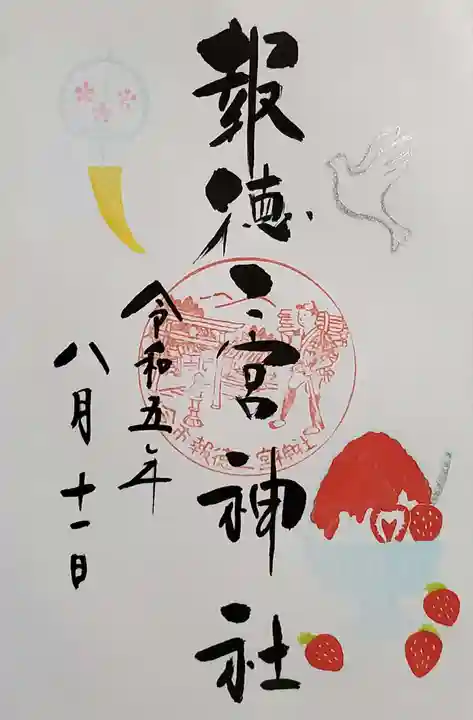 報徳二宮神社
令和五年
八月十一日
報徳二宮神社